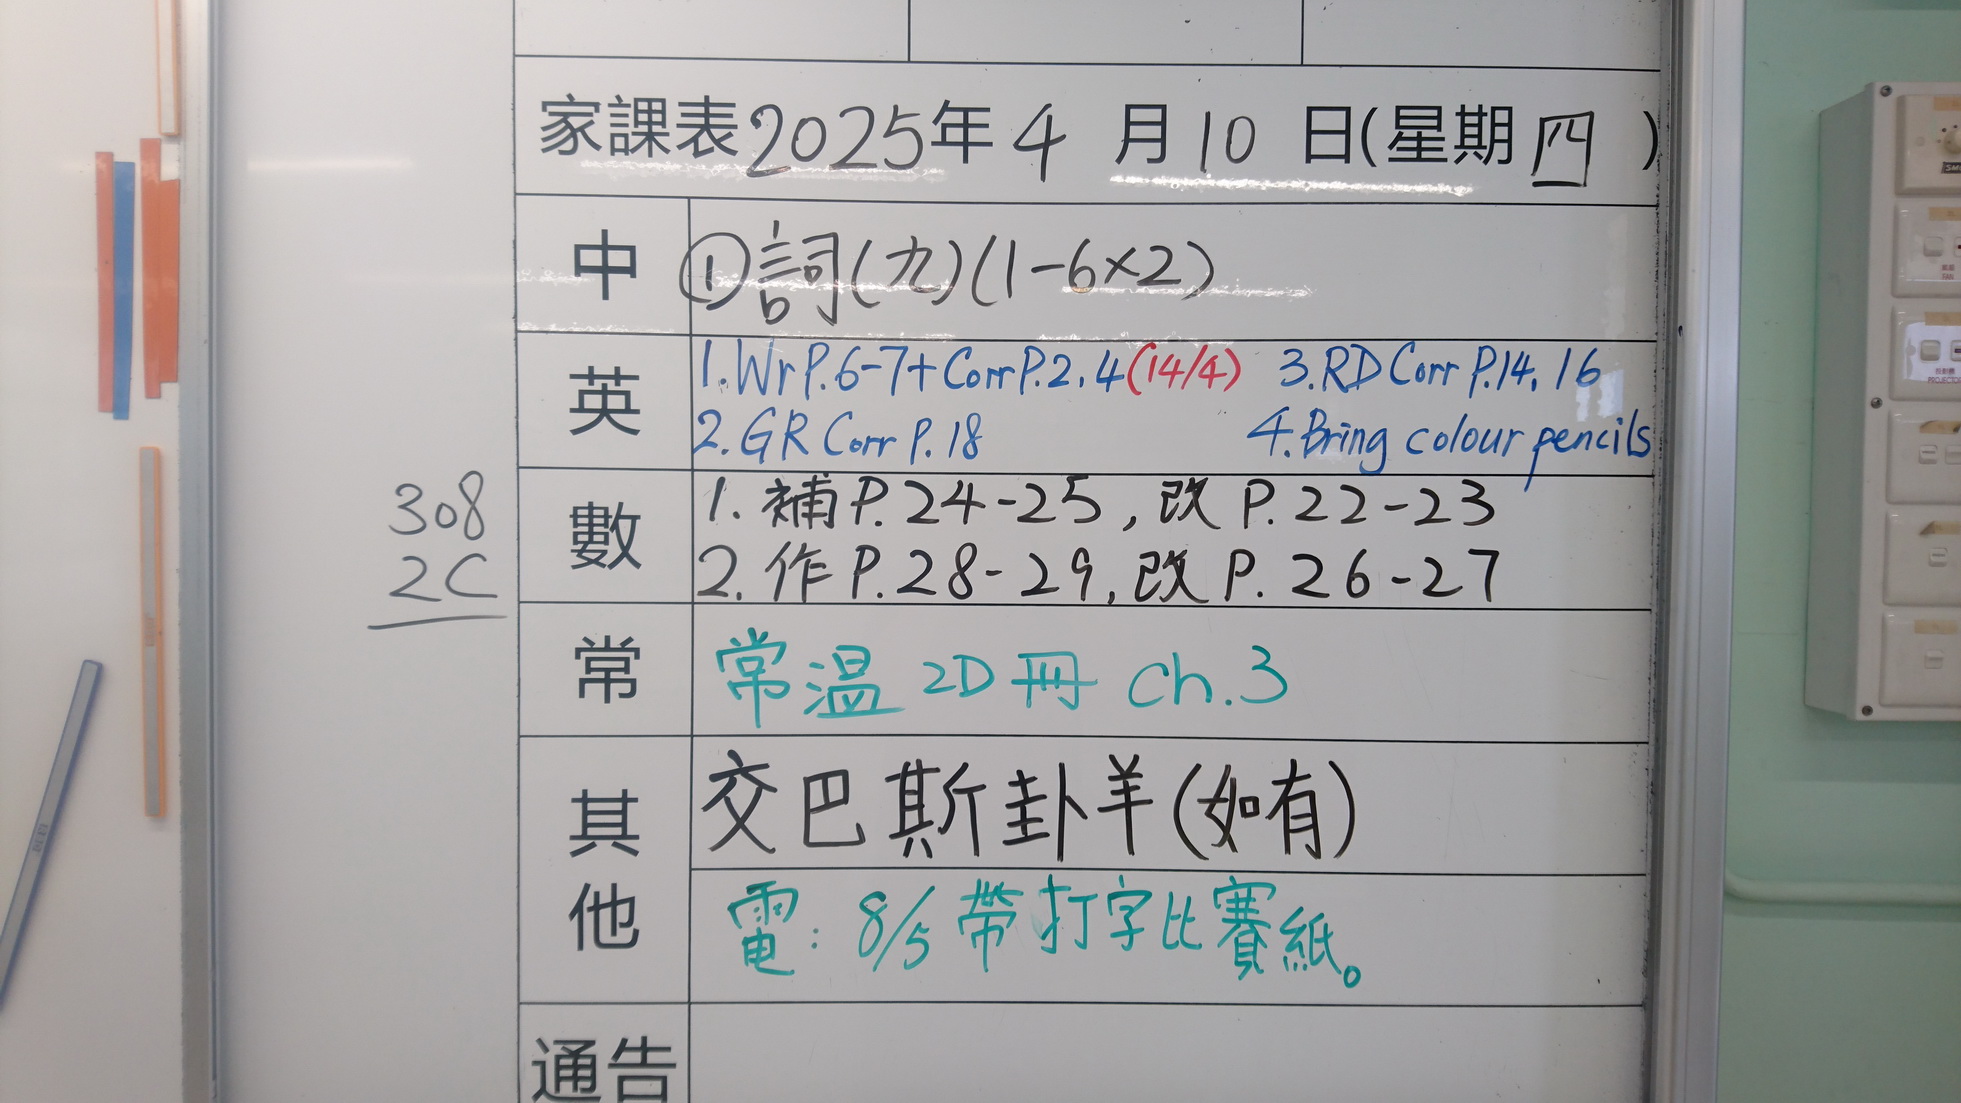 家課表2025年4月10日(星期四)
中
①詞(九)(1-6×2)
英
1.Wr P.6-7+Corr P.2,4(14/4) 3.RD Corr P.14,16
2.GR Corr P.18 4.Bring colour pencils
308
2C
數
1.補P.24-25,改P.22-23
2.作P.28-29,改P.26-27
常
常温 2D冊 ch.3
其他
交巴斯卦羊(如有)
電:8/5帶打字比賽紙。
通告